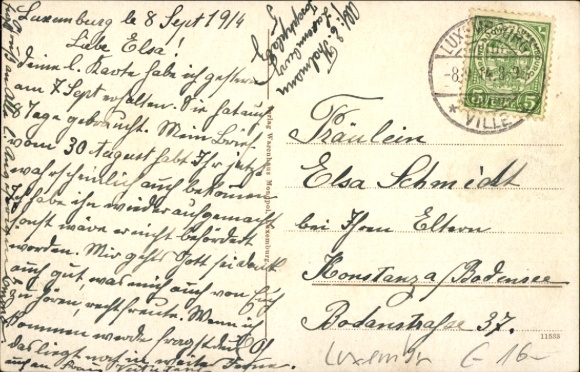 Luxemburg le 8 Sept 1914
Liebe Elsa!
Deine l. Karte habe ich gestern
am 7 Sept erhalten. Sie hat auch
8 Tage gebraucht. Mein Brief
vom 30 August habt Ihr jetzt
wahrscheinlich auch bekommen
habe ihn wieder aufgemacht
sonst wäre er nicht befördert
worden. Mir gehts Gott sei dank
auch gut, was mich auch von Euch
zu hören, recht freute. Wenn ich
kommen werde fragst du?
das liegt noch in weiter Ferne.
Luxemburg
Verlag Warenhaus Luxemburg
LUXEMBOURG
VILLE
5
Fräulein
Elsa Schmidt
bei Ihren Eltern
Konstanz a/Bodensee
Bodanstraße 37.
11535
Luxembur
E 16-